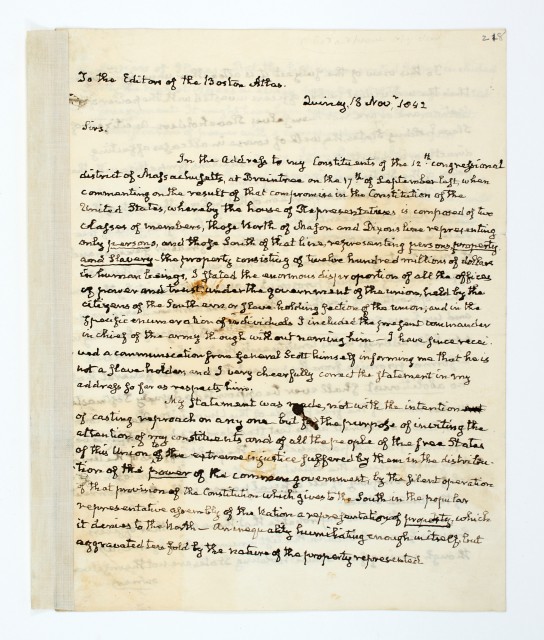 218
To the Editors of the Boston Atlas.
Quincy, 18 Novr. 1842
Sirs.
In the Address to my Constituents of the 12th. Congressional
district of Massachusetts, at Braintree on the 17th. of September last, when
commenting on the result of that compromise in the Constitution of the
United States, whereby the house of Representatives is composed of two
classes of members, those North of Mason and Dixons line representing
only persons, and those South of that line, representing persons, property
and Slavery the property consisting of twelve hundred millions of dollars
in human beings, I stated the enormous disproportion of all the offices
of power and trust under the government of the union, held by the
citizens of the Southern or Slave holding section of the union, and in the
specific enumeration of individuals I included the present commander
in chief of the army though without naming him — I have since recei
ved a communication from General Scott himself informing me that he is
not a Slave holder, and I very cheerfully correct the statement in my
address so far as respects him.
My Statement was made, not with the intention
of casting reproach on any one but for the purpose of inviting the
attention of my constituents and of all the people of the free States
of this Union of the extreme injustice suffered by them in the distribu-
tion of the power of the common government, by the silent operation
of that provision of the Constitution which gives to the South in the popular
representative assembly of the Nation a representation of property, which
it denies to the North — An inequality humiliating enough in itself, but
aggravated ten fold by the nature of the property represented.